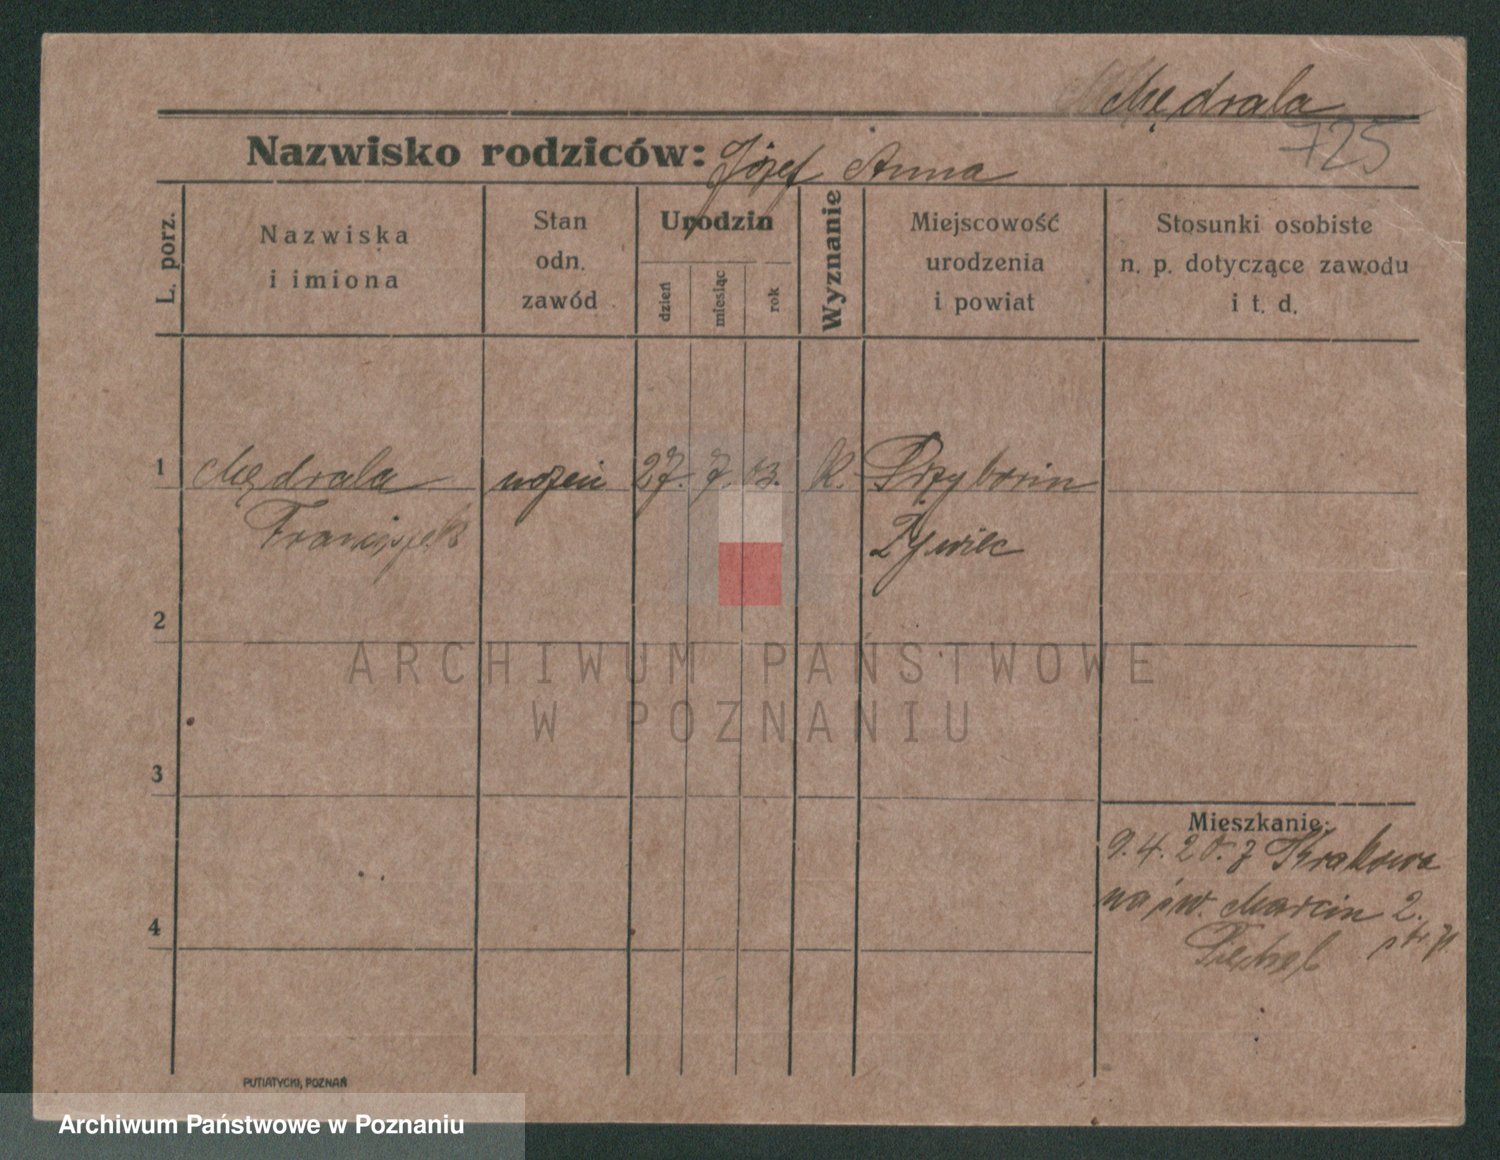 Mędrala
725
Nazwisko rodziców: Józef Anna
L. porz.
Nazwiska
i imiona
Stan
odn.
zawód
Urodzin
dzień
miesiąc
rok
Wyznanie
Miejscowość
urodzenia
i powiat
Stosunki osobiste
n. p. dotyczące zawodu
i t. d.
1 Mędrala woźni 27. 7. 13. K. Przyborin
Franciszek Żywiec
2
ARCHIWUM PAŃSTWOWE
W POZNANIU
3
Mieszkanie:
9. 4. 20. z Krakowa
na św. Marcin 2.
4
PUTIATYCKI, POZNAŃ
Archiwum Państwowe w Poznaniu